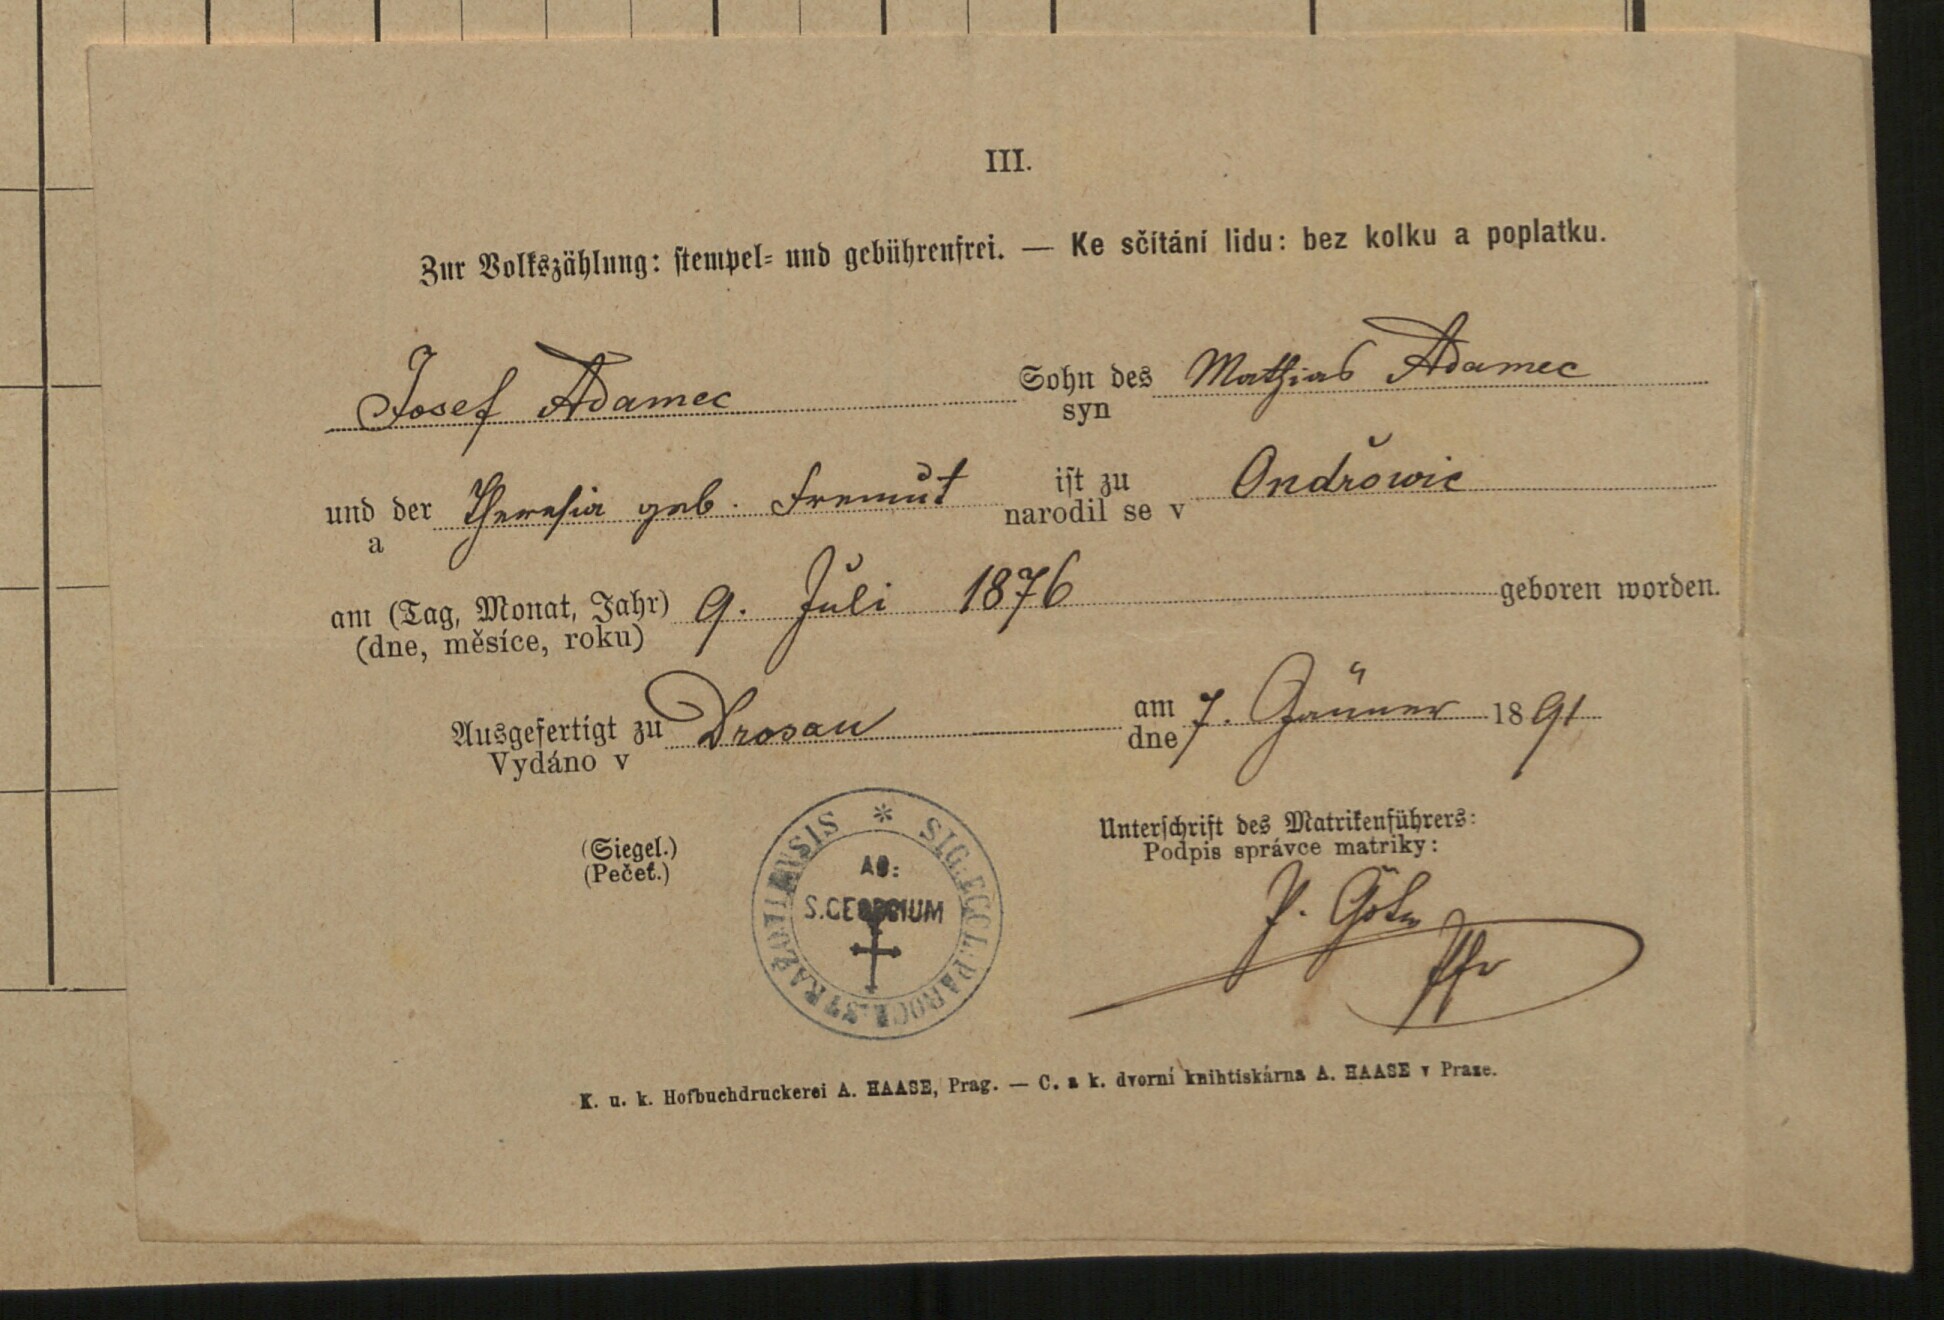 III.
Zur Volkszählung: stempel- und gebührenfrei. — Ke sčítání lidu: bez kolku a poplatku.
Josef Adamec Sohn des Mathias Adamec
syn
und der Theresia geb. Fremut ist zu Ondřowic
a narodil se v
am (Tag, Monat, Jahr) 9. Juli 1876 geboren worden.
(dne, měsíce, roku)
Ausgefertigt zu Drosau am 7. Jänner 1891
Vydáno v dne
(Siegel.)
(Pečeť.)
* SIG. ECCL. PAROCH. STRAŽOVIENSIS
AD:
S. GEORGIUM
Unterschrift des Matrikenführers:
Podpis správce matriky:
P.
Pfr
K. u. k. Hofbuchdruckerei A. HAASE, Prag. — C. a k. dvorní knihtiskárna A. HAASE v Praze.